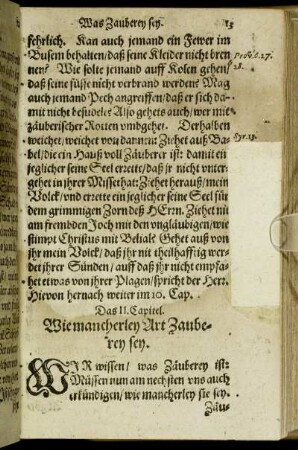 Was Zauberey sey. 13
fehrlich. Kan auch jemand ein Fewer im
Busem behalten/ daß seine Kleider nicht bren
nen? Wie solte jemand auff Kolen gehen/
daß seine füsse nicht verbrand werden? Mag
auch jemand Pech angreiffen/ daß er sich da-
mit nicht besudele? Also gehets auch/ wer mit
zäuberischer Rotten umbgehet. Derhalben
weichet/ weichet von dannen/ Ziehet auß Ba-
bel/ die ein Hauß voll Zäuberer ist: damit ein
jeglicher seine Seel errette/ daß jr nicht unter-
gehet in jhrer Missethat: Ziehet herauß/ mein
Volck/ und errette ein jeglicher seine Seel für
dem grimmigen Zorn deß HErrn. Ziehet nit
am frembden Joch mit den ungläubigen/ wie
stimpt Christus mit Belial? Gehet auß von
jhr mein Volck/ daß jhr nit theilhafftig wer-
det jhrer Sünden/ auff daß jhr nicht empfa-
het etwas von jhrer Plagen/ spricht der Herr.
Hievon hernach weiter im 10. Cap.
Das II. Capitel.
Wie mancherley Art Zaube-
rey sey.
WIR wissen/ was Zäuberey ist:
Müssen nun am nechsten uns auch
erkündigen/ wie mancherley sie sey.
Zäu-